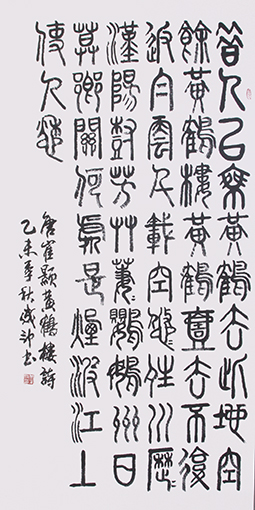 昔人已乘黃鶴去此地空
餘黃鶴樓黃鶴壹去不復
返白雲千載空悠〻晴川歷〻
漢陽樹芳艸萋〻鸚鵡洲日
暮鄉關何處是煙波江上
使人愁
唐崔顥黃鶴樓詩
乙未季秋書